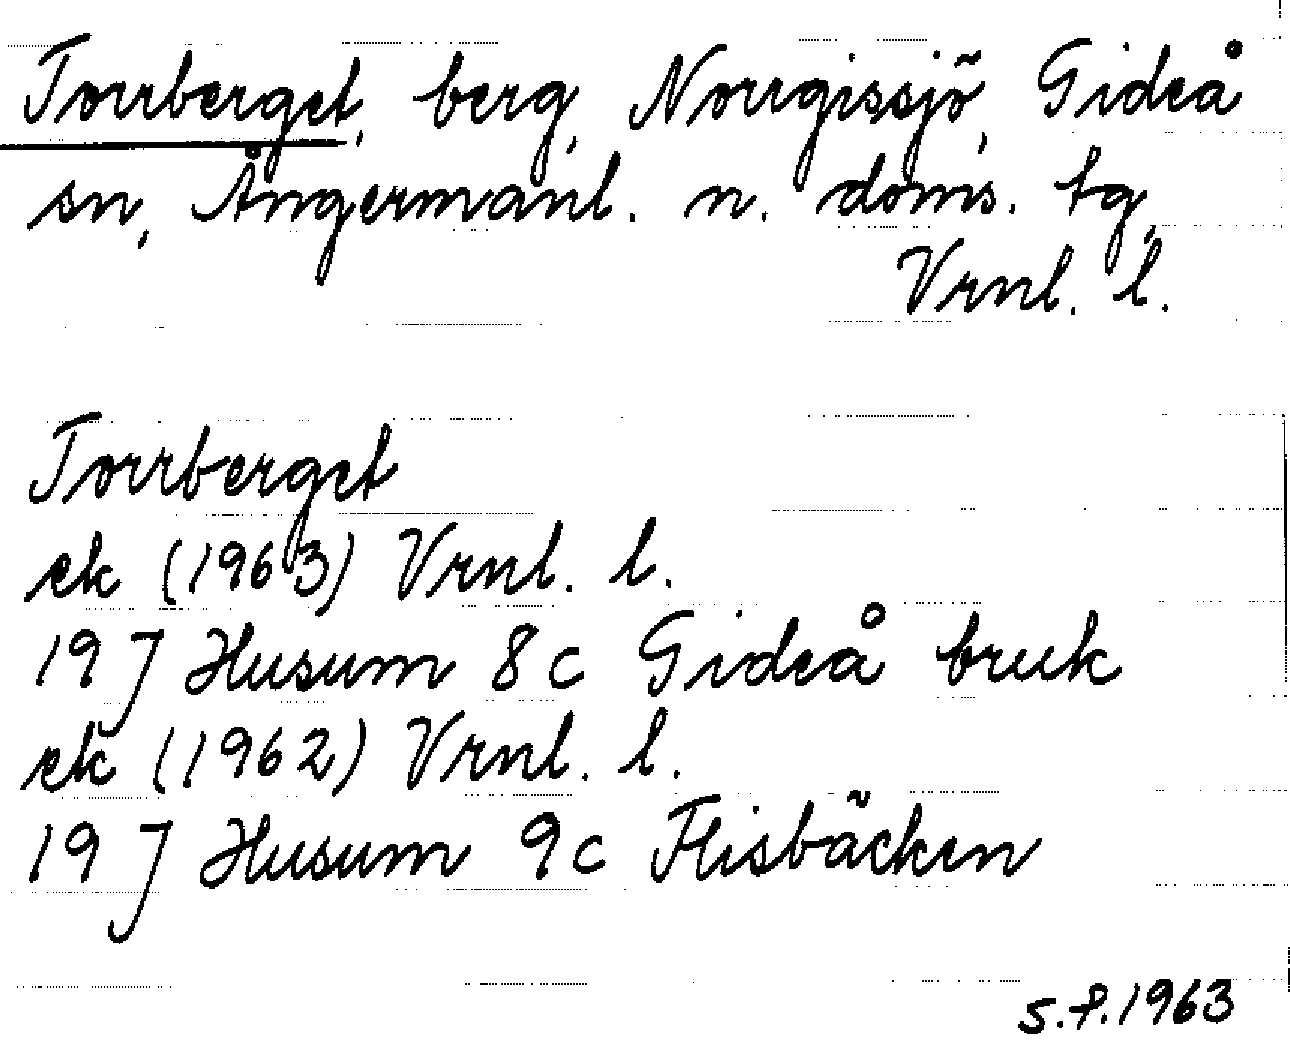 Torrberget, berg, Norrgissjö, Gideå
sn, Ångermanl. n. doms. tg,
Vrnl. l.
Torrberget
ek (1963) Vrnl. l.
19 J Husum 8c Gideå bruk
ek (1962) Vrnl. l.
19 J Husum 9c Flisbäcken
S.P. 1963